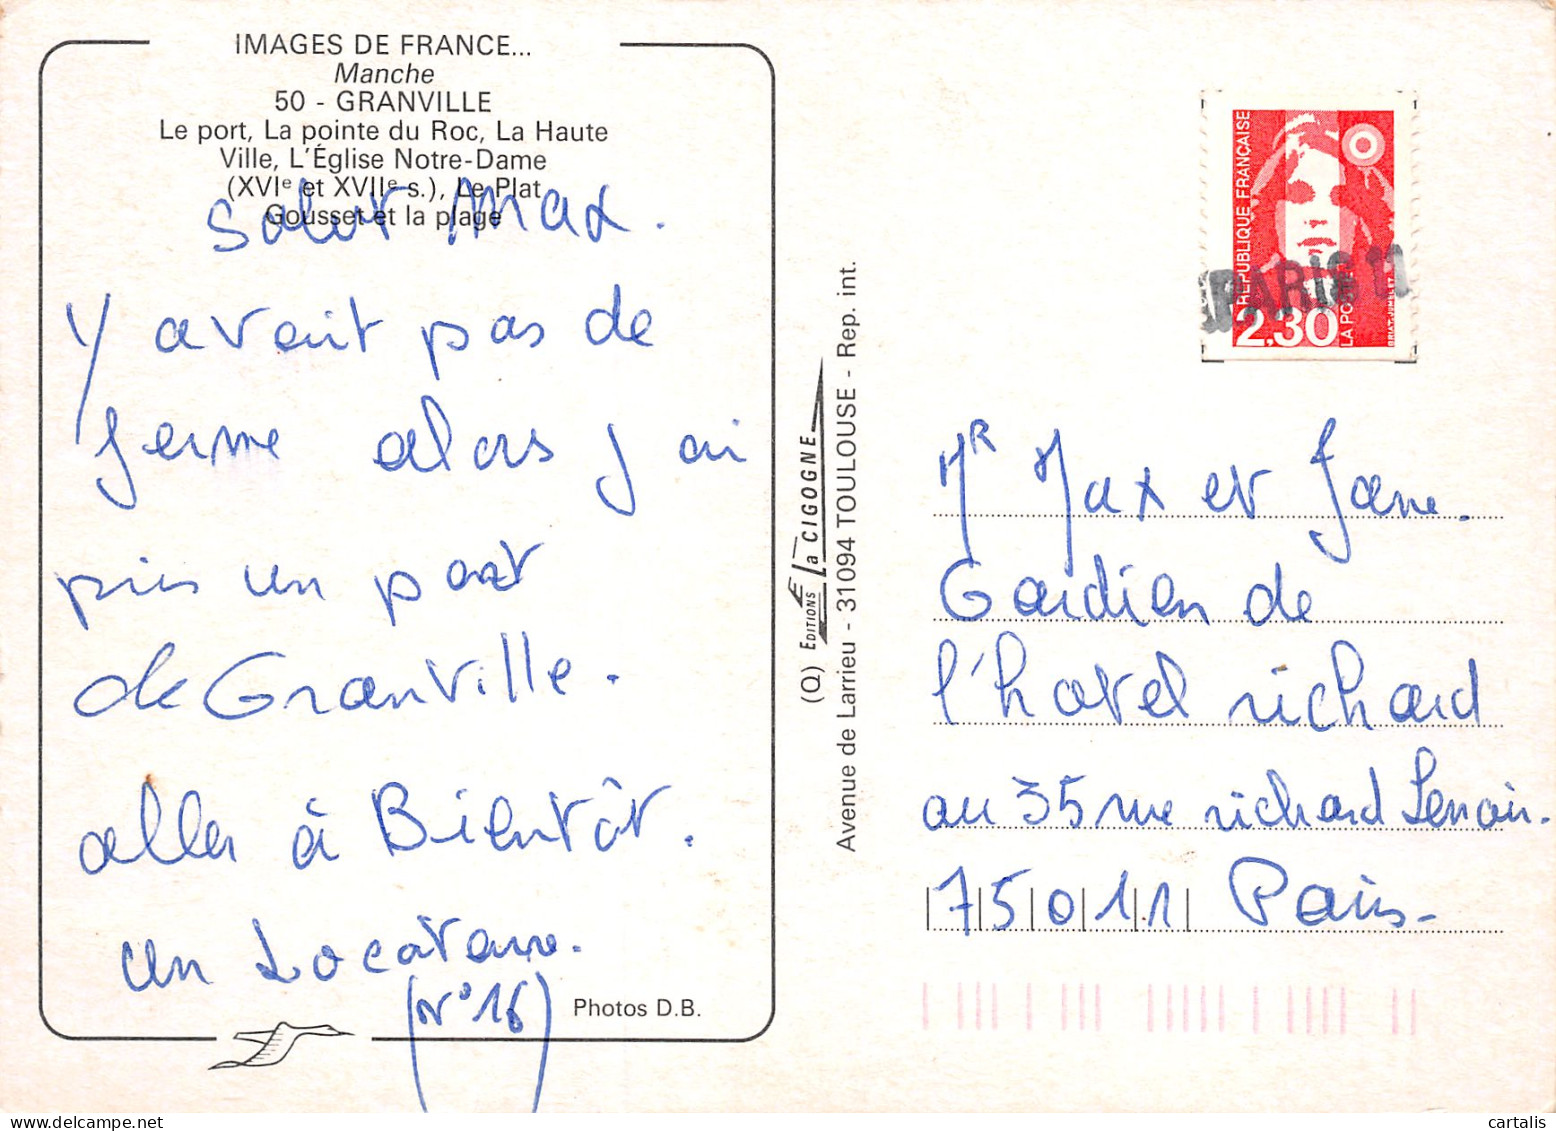 IMAGES DE FRANCE...
Manche
50 - GRANVILLE
Le port, La pointe du Roc, La Haute
Ville, L'Église Notre-Dame
(XVIe et XVIIe s.), Le Plat
Gousset et la plage
Salut Max.
Y avait pas de
ferme alors j ai
pris un port
de Granville.
aller à Bientôt.
un Locataire.
(N° 16)
Photos D.B.
(Q) EDITIONS La CIGOGNE
Avenue de Larrieu - 31094 TOULOUSE - Rep. int.
RÉPUBLIQUE FRANÇAISE
2,30
LA POSTE
BRIAT-JUMELET
PARIS 11
MR Max et Jane.
Gardien de
l'hotel richard
au 35 rue richard Lenoir.
75011 Paris-
cartalis